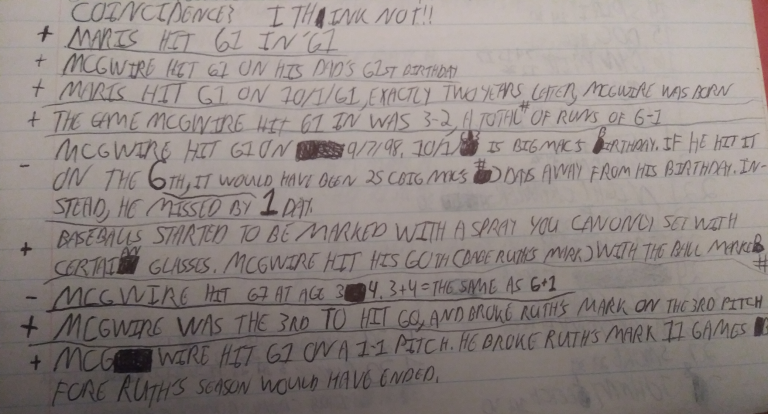 COINCIDENCE? I THINK NOT!!
+ MARIS HIT 61 IN '61
+ MCGWIRE HIT 61 ON HIS DAD'S 61ST BIRTHDAY
+ MARIS HIT 61 ON 10/1/61, EXACTLY TWO YEARS LATER, MCGWIRE WAS BORN
+ THE GAME MCGWIRE HIT 61 IN WAS 3-2, A TOTAL # OF RUNS OF 6-1
MCGWIRE HIT 61 ON 9/7/98. 10/1/ IS BIG MAC'S BIRTHDAY. IF HE HIT IT
- ON THE 6TH, IT WOULD HAVE BEEN 25 (BIG MKS #) DAYS AWAY FROM HIS BIRTHDAY. IN-
STEAD, HE MISSED BY 1 DAY.
BASEBALLS STARTED TO BE MARKED WITH A SPRAY YOU CAN ONLY SET WITH
+ CERTAIN GLASSES. MCGWIRE HIT HIS 60TH (BABE RUTH'S MARK) WITH THE BALL MARKED
#
- MCGWIRE HIT 67 AT AGE 34. 3+4 = THE SAME AS 6+1
+ MCGWIRE WAS THE 3RD TO HIT 60, AND BROKE RUTH'S MARK ON THE 3RD PITCH
+ MCGWIRE HIT 61 ON A 1-1 PITCH. HE BROKE RUTH'S MARK 11 GAMES
FORE RUTH'S SEASON WOULD HAVE ENDED.